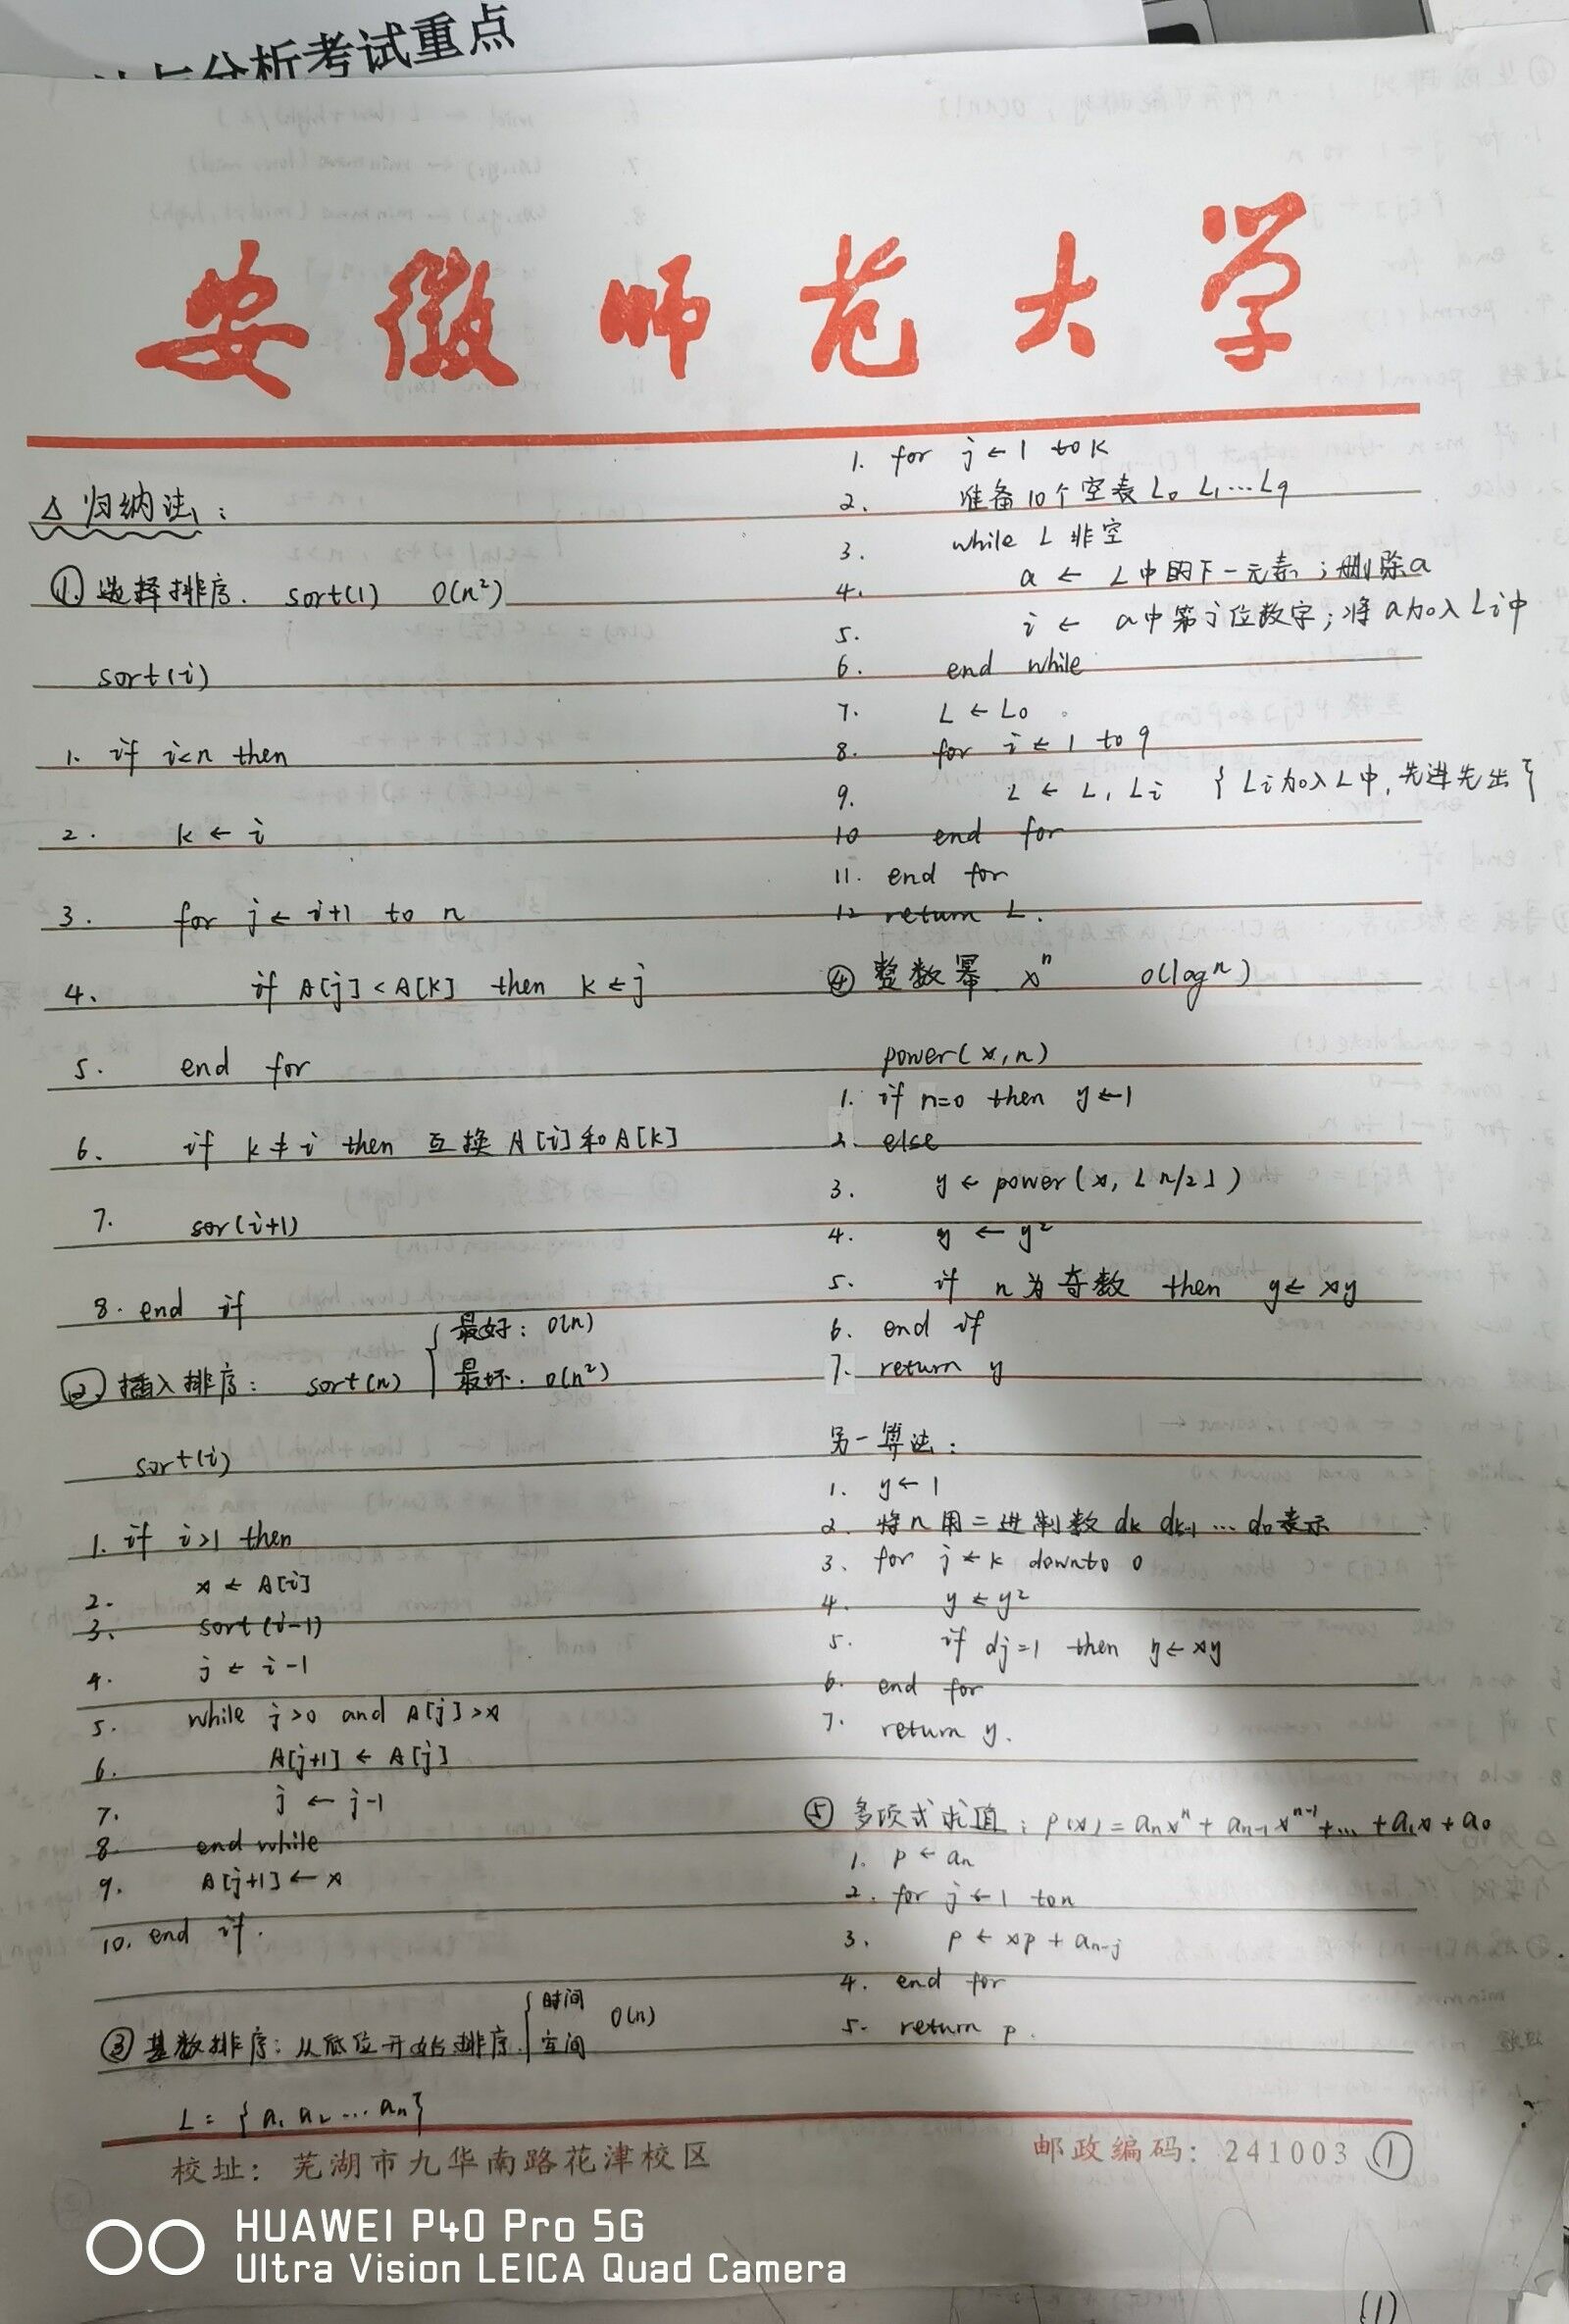 分析考试重点
安徽师范大学
△ 归纳法:
① 选择排序. sort(1) O(n²)
sort(i)
1. if i<n then
2. k ← i
3. for j ← i+1 to n
4. if A[j] < A[k] then k ← j
5. end for
6. if k ≠ i then 互换 A[i] 和 A[k]
7. sor(i+1)
8. end if
② 插入排序: sort(n) { 最好: O(n)
最坏: O(n²)
sort(i)
1. if i>1 then
2. x ← A[i]
3. sort(i-1)
4. j ← i-1
5. while j>0 and A[j]>x
6. A[j+1] ← A[j]
7. j ← j-1
8 end while
9. A[j+1] ← x
10. end if.
③ 基数排序: 从低位开始排序. { 时间
空间 O(n)
L = { a₁ a₂ ... aₙ }
1. for j ← 1 to k
2. 准备10个空表 L₀ L₁ ... L₉
3. while L 非空
4. a ← L中的下一元素; 删除a
5. i ← a中第j位数字; 将a加入Li中
6. end while
7. L ← L₀
8. for i ← 1 to 9
9. L ← L, Li { Li加入L中, 先进先出 }
10 end for
11. end for
12 return L.
④ 整数幂 xⁿ O(logⁿ)
power(x, n)
1. if n=0 then y←1
2. else
3. y ← power(x, ⌊n/2⌋)
4. y ← y²
5. if n为奇数 then y← xy
6. end if
7. return y
另一算法:
1. y← 1
2. 将n用二进制数 dk dk-1 ... d₀表示
3. for j ← k downto 0
4. y ← y²
5. if dj=1 then y← xy
6. end for
7. return y.
⑤ 多项式求值: P(x) = aₙxⁿ + aₙ₋₁xⁿ⁻¹ + ... + a₁x + a₀
1. P ← aₙ
2. for j ← 1 to n
3. P ← xp + aₙ₋ⱼ
4. end for
5. return p.
校址: 芜湖市九华南路花津校区
邮政编码: 241003 ①
HUAWEI P40 Pro 5G
Ultra Vision LEICA Quad Camera
(1)